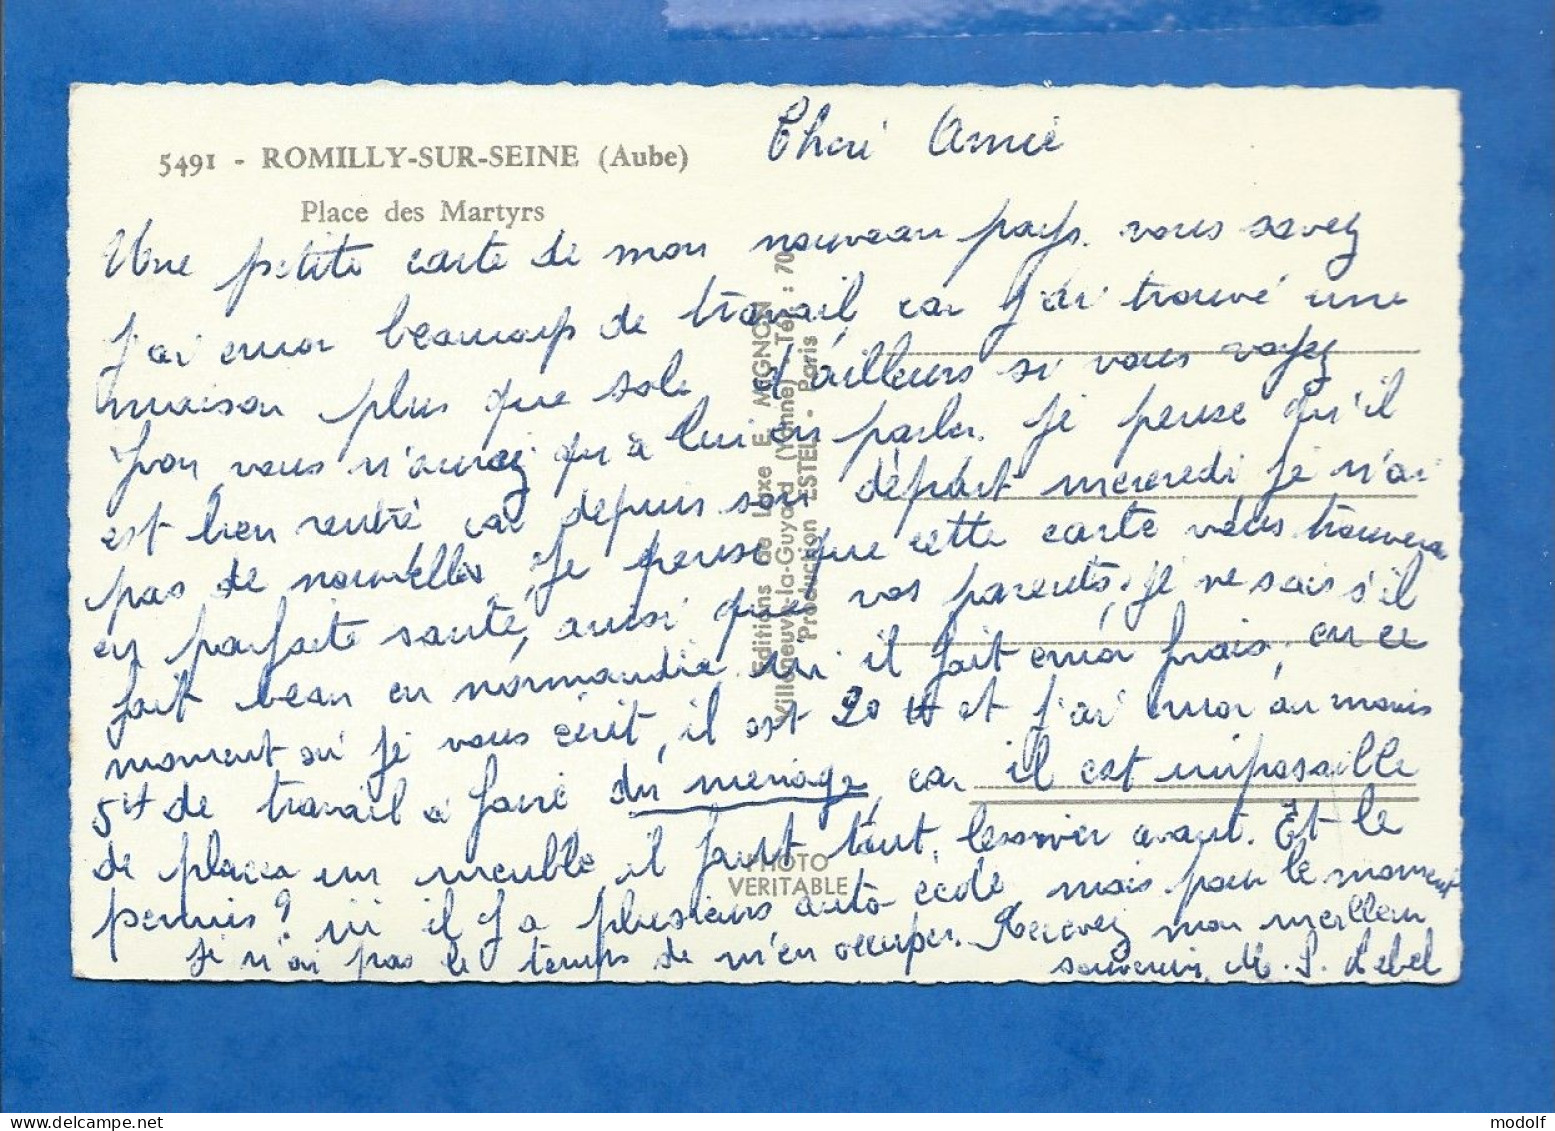 5491 - ROMILLY-SUR-SEINE (Aube)
Place des Martyrs
Cheri Amie
Une petite carte de mon nouveau pays. vous savez
j'ai encor beaucoup de travail, car j'ai trouvé une
maison plus que sale, d'ailleurs si vous voyez
Yvon, vous n'aurez qu'à lui en parler. Je pense qu'il
est bien rentré, car depuis son départ mercredi je n'ai
pas de nouvelles. Je pense que cette carte vous trouvera
en parfaite santé, ainsi que vos parents. Je ne sais s'il
fait beau en normandie ici il fait encor frais, en ce
moment où je vous écrit, il est 20 H et j'ai encor au moins
5H de travail a faire du menage, car il est impossible
de placer un meuble, il faut tout lessiver avant. Et le
permis? ici il y a plusieurs auto ecole, mais pour le moment
je n'ai pas le temps de m'en occuper. Recevez mon meilleur
souvenir, M. S. Lebel
Editions de Luxe E. MIGNON
Villeneuve-la-Guyard (Yonne) - Tél. : 70
Production ESTEL - Paris
PHOTO
VERITABLE
modolf